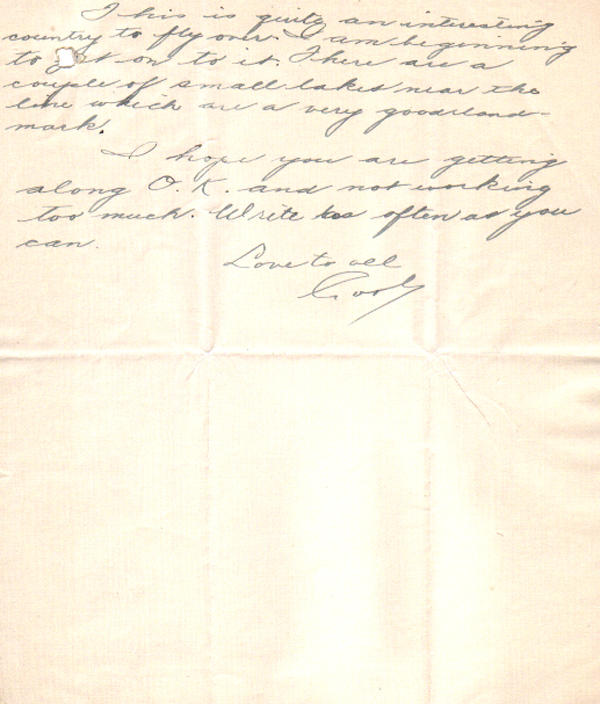 This is quite an interesting
country to fly over. I am beginning
to get on to it. There are a
couple of small lakes near the
line which are a very good land-
mark.
I hope you are getting
along O.K. and not working
too much. Write as often as you
can.
Love to all